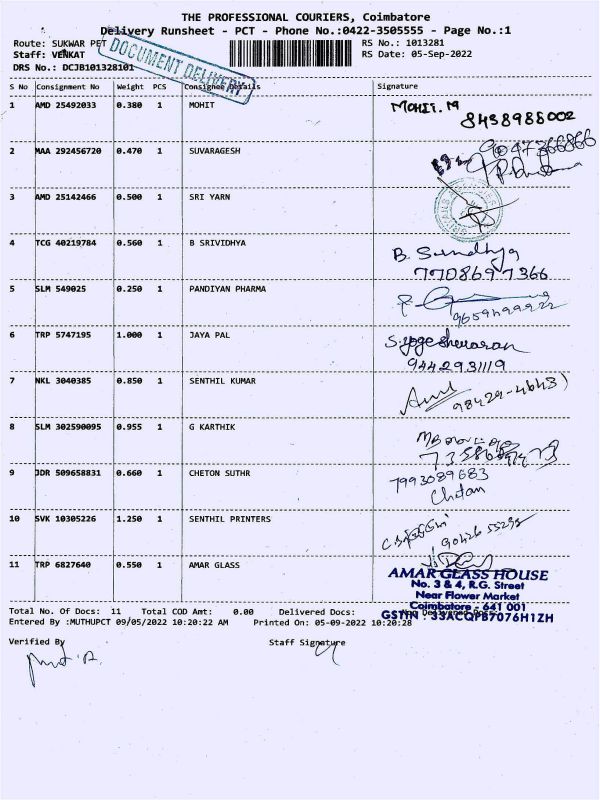 THE PROFESSIONAL COURIERS, Coimbatore
Delivery Runsheet - PCT - Phone No.:0422-3505555 - Page No.:1
Route: SUKWAR PET
RS No.: 1013281
Staff: VENKAT
RS Date: 05-Sep-2022
DRS No.: DCJB101328101
DOCUMENT DELIVERY
S No Consignment No Weight PCS Consignee Details Signature
1 AMD 25492033 0.380 1 MOHIT MOHIT. M
8438988002
2 MAA 292456720 0.470 1 SUVARAGESH
3 AMD 25142466 0.500 1 SRI YARN
4 TCG 40219784 0.560 1 B SRIVIDHYA
7708697366
5 SLM 549025 0.250 1 PANDIYAN PHARMA
6 TRP 5747195 1.000 1 JAYA PAL S.yogeshwaran
9442931119
7 NKL 3040385 0.850 1 SENTHIL KUMAR
98429-4643
8 SLM 302590095 0.955 1 G KARTHIK
9 JDR 509658831 0.660 1 CHETON SUTHR 7993089683
Chetan
10 SVK 10305226 1.250 1 SENTHIL PRINTERS
11 TRP 6827640 0.550 1 AMAR GLASS
AMAR GLASS HOUSE
No. 3 & 4, R.G. Street
Near Flower Market
Coimbatore - 641 001
GSTIN : 33ACQPB7076H1ZH
Total No. Of Docs: 11 Total COD Amt: 0.00 Delivered Docs:
Entered By :MUTHUPCT 09/05/2022 10:20:22 AM Printed On: 05-09-2022 10:20:28
Verified By Staff Signature